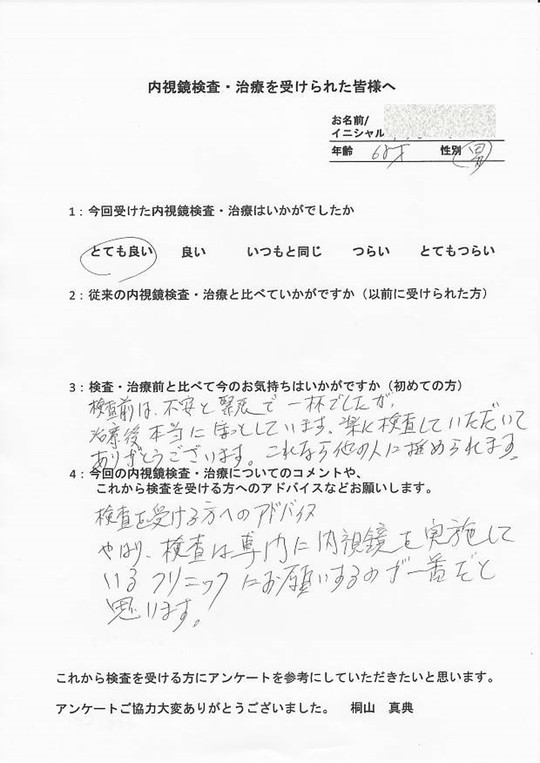 内視鏡検査・治療を受けられた皆様へ
お名前/
イニシャル
年齢 68才 性別 男
1:今回受けた内視鏡検査・治療はいかがでしたか
とても良い 良い いつもと同じ つらい とてもつらい
2:従来の内視鏡検査・治療と比べていかがですか(以前に受けられた方)
3:検査・治療前と比べて今のお気持ちはいかがですか(初めての方)
検査前は、不安と緊張で一杯でしたが、
治療後本当にほっとしています。楽に検査していただいて
ありがとうございます。これなら他の人に薦められます。
4:今回の内視鏡検査・治療についてのコメントや、
これから検査を受ける方へのアドバイスなどお願いします。
検査を受ける方へのアドバイス
やはり、検査は専門に内視鏡を実施して
いるクリニックにお願いするのが一番だと
思います。
これから検査を受ける方にアンケートを参考にしていただきたいと思います。
アンケートご協力大変ありがとうございました。 桐山 真典